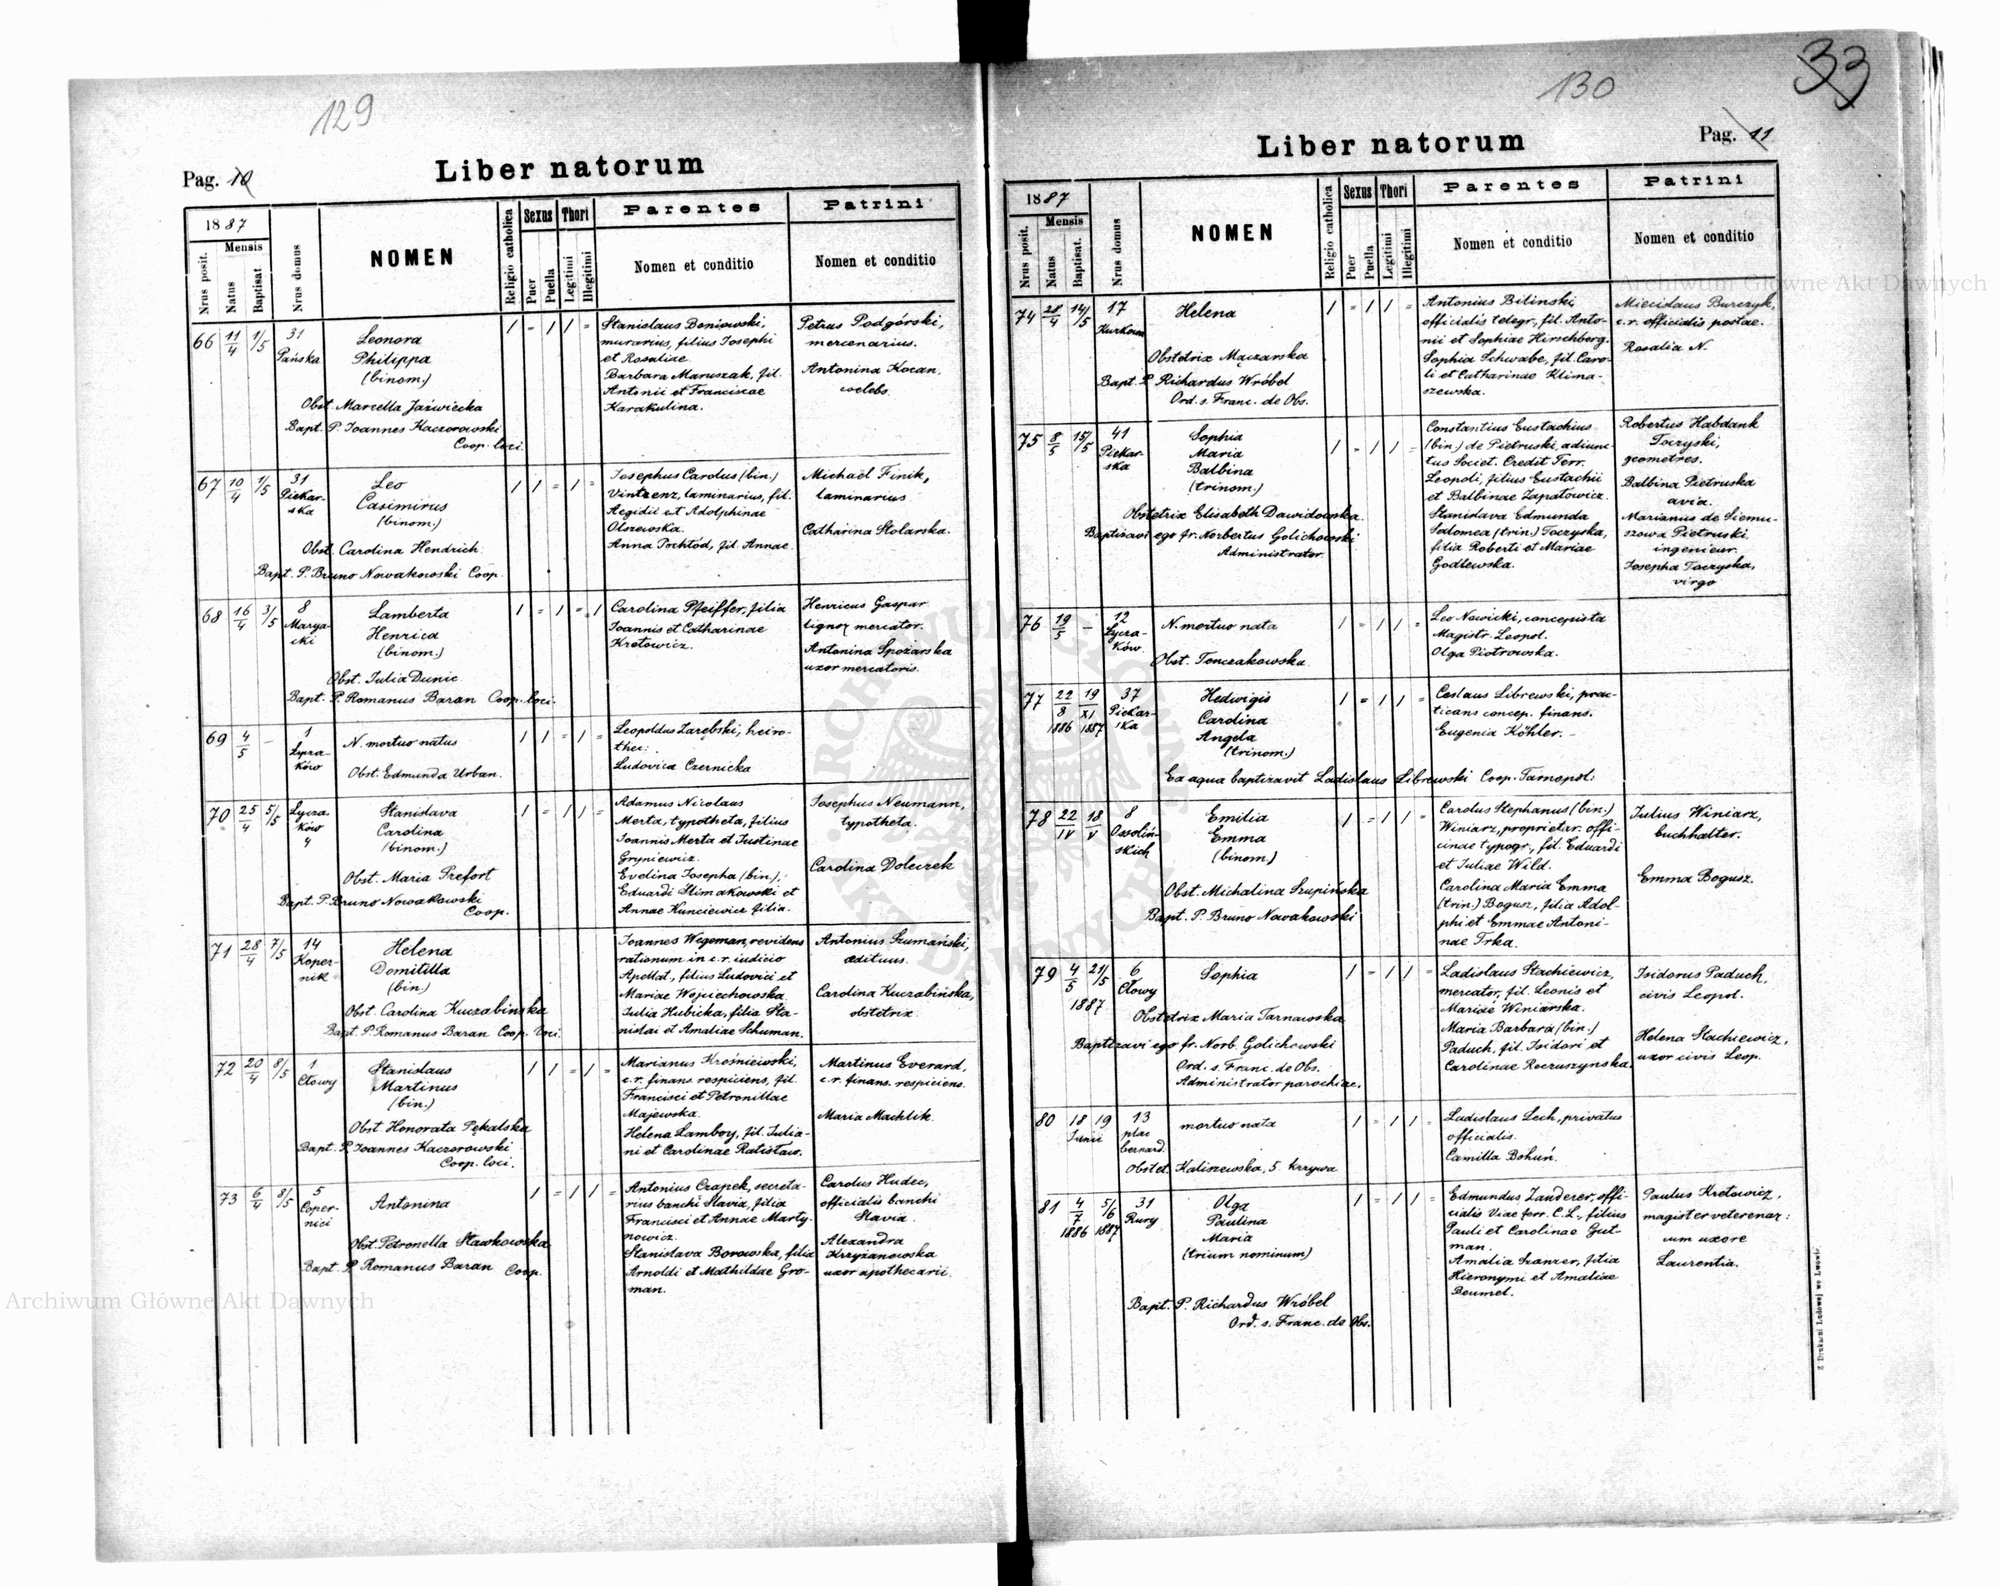 129
Pag. 10
Liber natorum
1887
Nrus posit.
Mensis
Natus
Baptisat.
Nrus domus
NOMEN
Religio catholica
Sexus
Puer
Puella
Thori
Legitimi
Illegitimi
Parentes
Nomen et conditio
Patrini
Nomen et conditio
66 11/4 1/5 31
Pańska
Leonora
Philippa
(binom.)
Obst. Marcella Jaźwiecka
Bapt. P. Joannes Kaczorowski
Coop. loci
Stanislaus Boniowski,
murarius, filius Josephi
et Rosaliae.
Barbara Maruszak, fil.
Antonii et Franciscae
Karakulina.
Petrus Podgórski,
mercenarius.
Antonina Kocan,
coelebs.
67 10/4 1/5 31
Piekar-
ska
Leo
Casimirus
(binom.)
Obst. Carolina Hendrich
Bapt. P. Bruno Nowakowski Coop.
Josephus Carolus (bin.)
Vintzenz, laminarius, fil.
Aegidii et Adolphinae
Olszewska.
Anna Pochłod, fil. Annae.
Michaël Finik,
laminarius.
Catharina Stolarska.
68 16/4 3/5 8
Marya-
cki
Lamberta
Henrica
(binom.)
Obst. Julia Dunic.
Bapt. P. Romanus Baran Coop. loci.
Carolina Pfeiffer, filia
Joannis et Catharinae
Kretowicz.
Henricus Gaspar
lignor. mercator.
Antonina Spożarska
uxor mercatoris.
69 4/5 - 1
Łycza-
ków
N. mortuo natus
Obst. Edmunda Urban.
Leopoldus Zarębski, heiro-
thec:
Ludovica Czernicka
70 25/4 5/5 Łycza-
ków
4
Stanislava
Carolina
(binom.)
Obst. Maria Prefort
Bapt. P. Bruno Nowakowski
Coop.
Adamus Nicolaus
Merta, typotheta, filius
Joannis Merta et Justinae
Gryniewicz.
Evelina Josepha (bin.),
Eduardi Slimakowski et
Annae Kunciewicz filia.
Josephus Neumann,
typotheta.
Carolina Doleczek
71 28/4 7/5 14
Koper-
nik
Helena
Domitilla
(bin.)
Obst. Carolina Kuczabińska
Bapt. P. Romanus Baran Coop. loci.
Joannes Wegeman, revidens
rationum in c.r. iudicio
Apellat., filius Ludovici et
Mariae Wojciechowska.
Julia Hubicka, filia Sta-
nislai et Amaliae Schuman.
Antonius Szumański,
aedituus.
Carolina Kuczabińska,
obstetrix.
72 20/4 8/5 1
Cłowy
Stanislaus
Martinus
(bin.)
Obst. Honorata Pękalska
Bapt. P. Joannes Kaczorowski
Coop. loci.
Marianus Krośniewski,
c.r. finans. respiciens, fil.
Francisci et Petronillae
Majewska.
Helena Lamboy, fil. Julia-
ni et Carolinae Ratisław.
Martinus Everard,
c.r. finans. respiciens.
Maria Machlik.
73 6/4 8/5 5
Coper-
nici
Antonina
Obst. Petronella Sławkowska
Bapt. P. Romanus Baran Coop.
Antonius Czapek, secreta-
rius banchi Slavia, filia
Francisci et Annae Marty-
nowicz.
Stanislava Borowska, filia
Arnoldi et Mathildae Gro-
man.
Carolus Hudec,
officialis banchi
Slavia.
Alexandra
Krzyżanowska
uxor apothecarii.
33
130
Liber natorum
Pag. 11
1887
Nrus posit.
Mensis
Natus
Baptisat.
Nrus domus
NOMEN
Religio catholica
Sexus
Puer
Puella
Thori
Legitimi
Illegitimi
Parentes
Nomen et conditio
Patrini
Nomen et conditio
74 28/4 14/5 17
Kurkowa
Helena
Obstetrix Mączarska
Bapt. P. Richardus Wróbel
Ord. s. Franc. de Obs.
Antonius Bilinski,
officialis telegr., fil. Anto-
nii et Sophiae Hirschberg.
Sophia Schwabe, fil. Caro-
li et Catharinae Klima-
szewska.
Miecislaus Burczyk,
c.r. officialis postae.
Rosalia N.
75 8/5 15/5 41
Piekar-
ska
Sophia
Maria
Balbina
(trinom.)
Obstetrix Elisabeth Dawidowska.
Baptisavi ego fr. Norbertus Golichowski
Administrator.
Constantius Eustachius
(bin.) de Pietruski, adiunc-
tus Societ. Credit. Terr.
Leopoli, filius Eustachii
et Balbinae Zapatowicz.
Stanislava Edmunda
Salomea (trin.) Toczyska,
filia Roberti et Mariae
Godlewska.
Robertus Habdank
Toczyski,
geometres.
Balbina Pietruska
avia.
Marianus de Siemu-
szowa Pietruski,
ingenieur.
Josepha Toczyska,
virgo
76 19/5 - 12
Łycza-
ków
N. mortuo nata
Obst. Tenczakowska.
Leo Nowicki, concepista
Magistr. Leopol.
Olga Piotrowska.
77 22/8 1886 19/XI 1887 37
Piekar-
ska
Hedwigis
Carolina
Angela
(trinom.)
Ex aqua baptizavit Ladislaus Librewski Coop. Tarnopol:
Ceslaus Librewski, prac-
ticans concep. finans.
Eugenia Köhler.
78 22/IV 18/V 8
Ossoliń-
skich
Emilia
Emma
(binom)
Obst. Michalina Szupińska
Bapt. P. Bruno Nowakowski
Carolus Stephanus (bin.)
Winiarz, proprietar. offi-
cinae typogr., fil. Eduardi
et Juliae Wild.
Carolina Maria Emma
(trin.) Bogusz, filia Adol-
phi et Emmae Antoni-
nae Trka.
Julius Winiarz,
buchhalter.
Emma Bogusz.
79 4/5 21/5 1887 6
Cłowy
Sophia
Obstetrix Maria Tarnawska
Baptizavi ego fr. Norb. Golichowski
Ord. s. Franc. de Obs.
Administrator parochiae.
Ladislaus Stachiewicz,
mercator, fil. Leonis et
Mariae Winiarska.
Maria Barbara (bin.)
Paduch, fil. Isidori et
Carolinae Reczuszynska.
Isidorus Paduch,
civis Leopol.
Helena Stachiewicz,
uxor civis Leop.
80 18 19 Junii 13
plac
bernard.
mortuo nata
Obstet. Kaliszewska, 5. Krzywa
Ladislaus Lech, privatus
officialis.
Camilla Bohuń.
81 4/7 1886 5/6 1887 31
Rury
Olga
Paulina
Maria
(trium nominum)
Bapt. P. Richardus Wróbel
Ord. s. Franc. de Obs.
Edmundus Zanderer, offi-
cialis Viae ferr. C.L., filius
Pauli et Carolinae Gut-
man.
Amalia Szanzer, filia
Hieronymi et Amaliae
Beumel.
Paulus Kretowicz,
magister veterenar:
cum uxore
Laurentia.
Z Drukarni Ludowej we Lwowie
Archiwum Główne Akt Dawnych
Archiwum Główne Akt Dawnych
ARCHIWUM GŁÓWNE AKT DAWNYCH